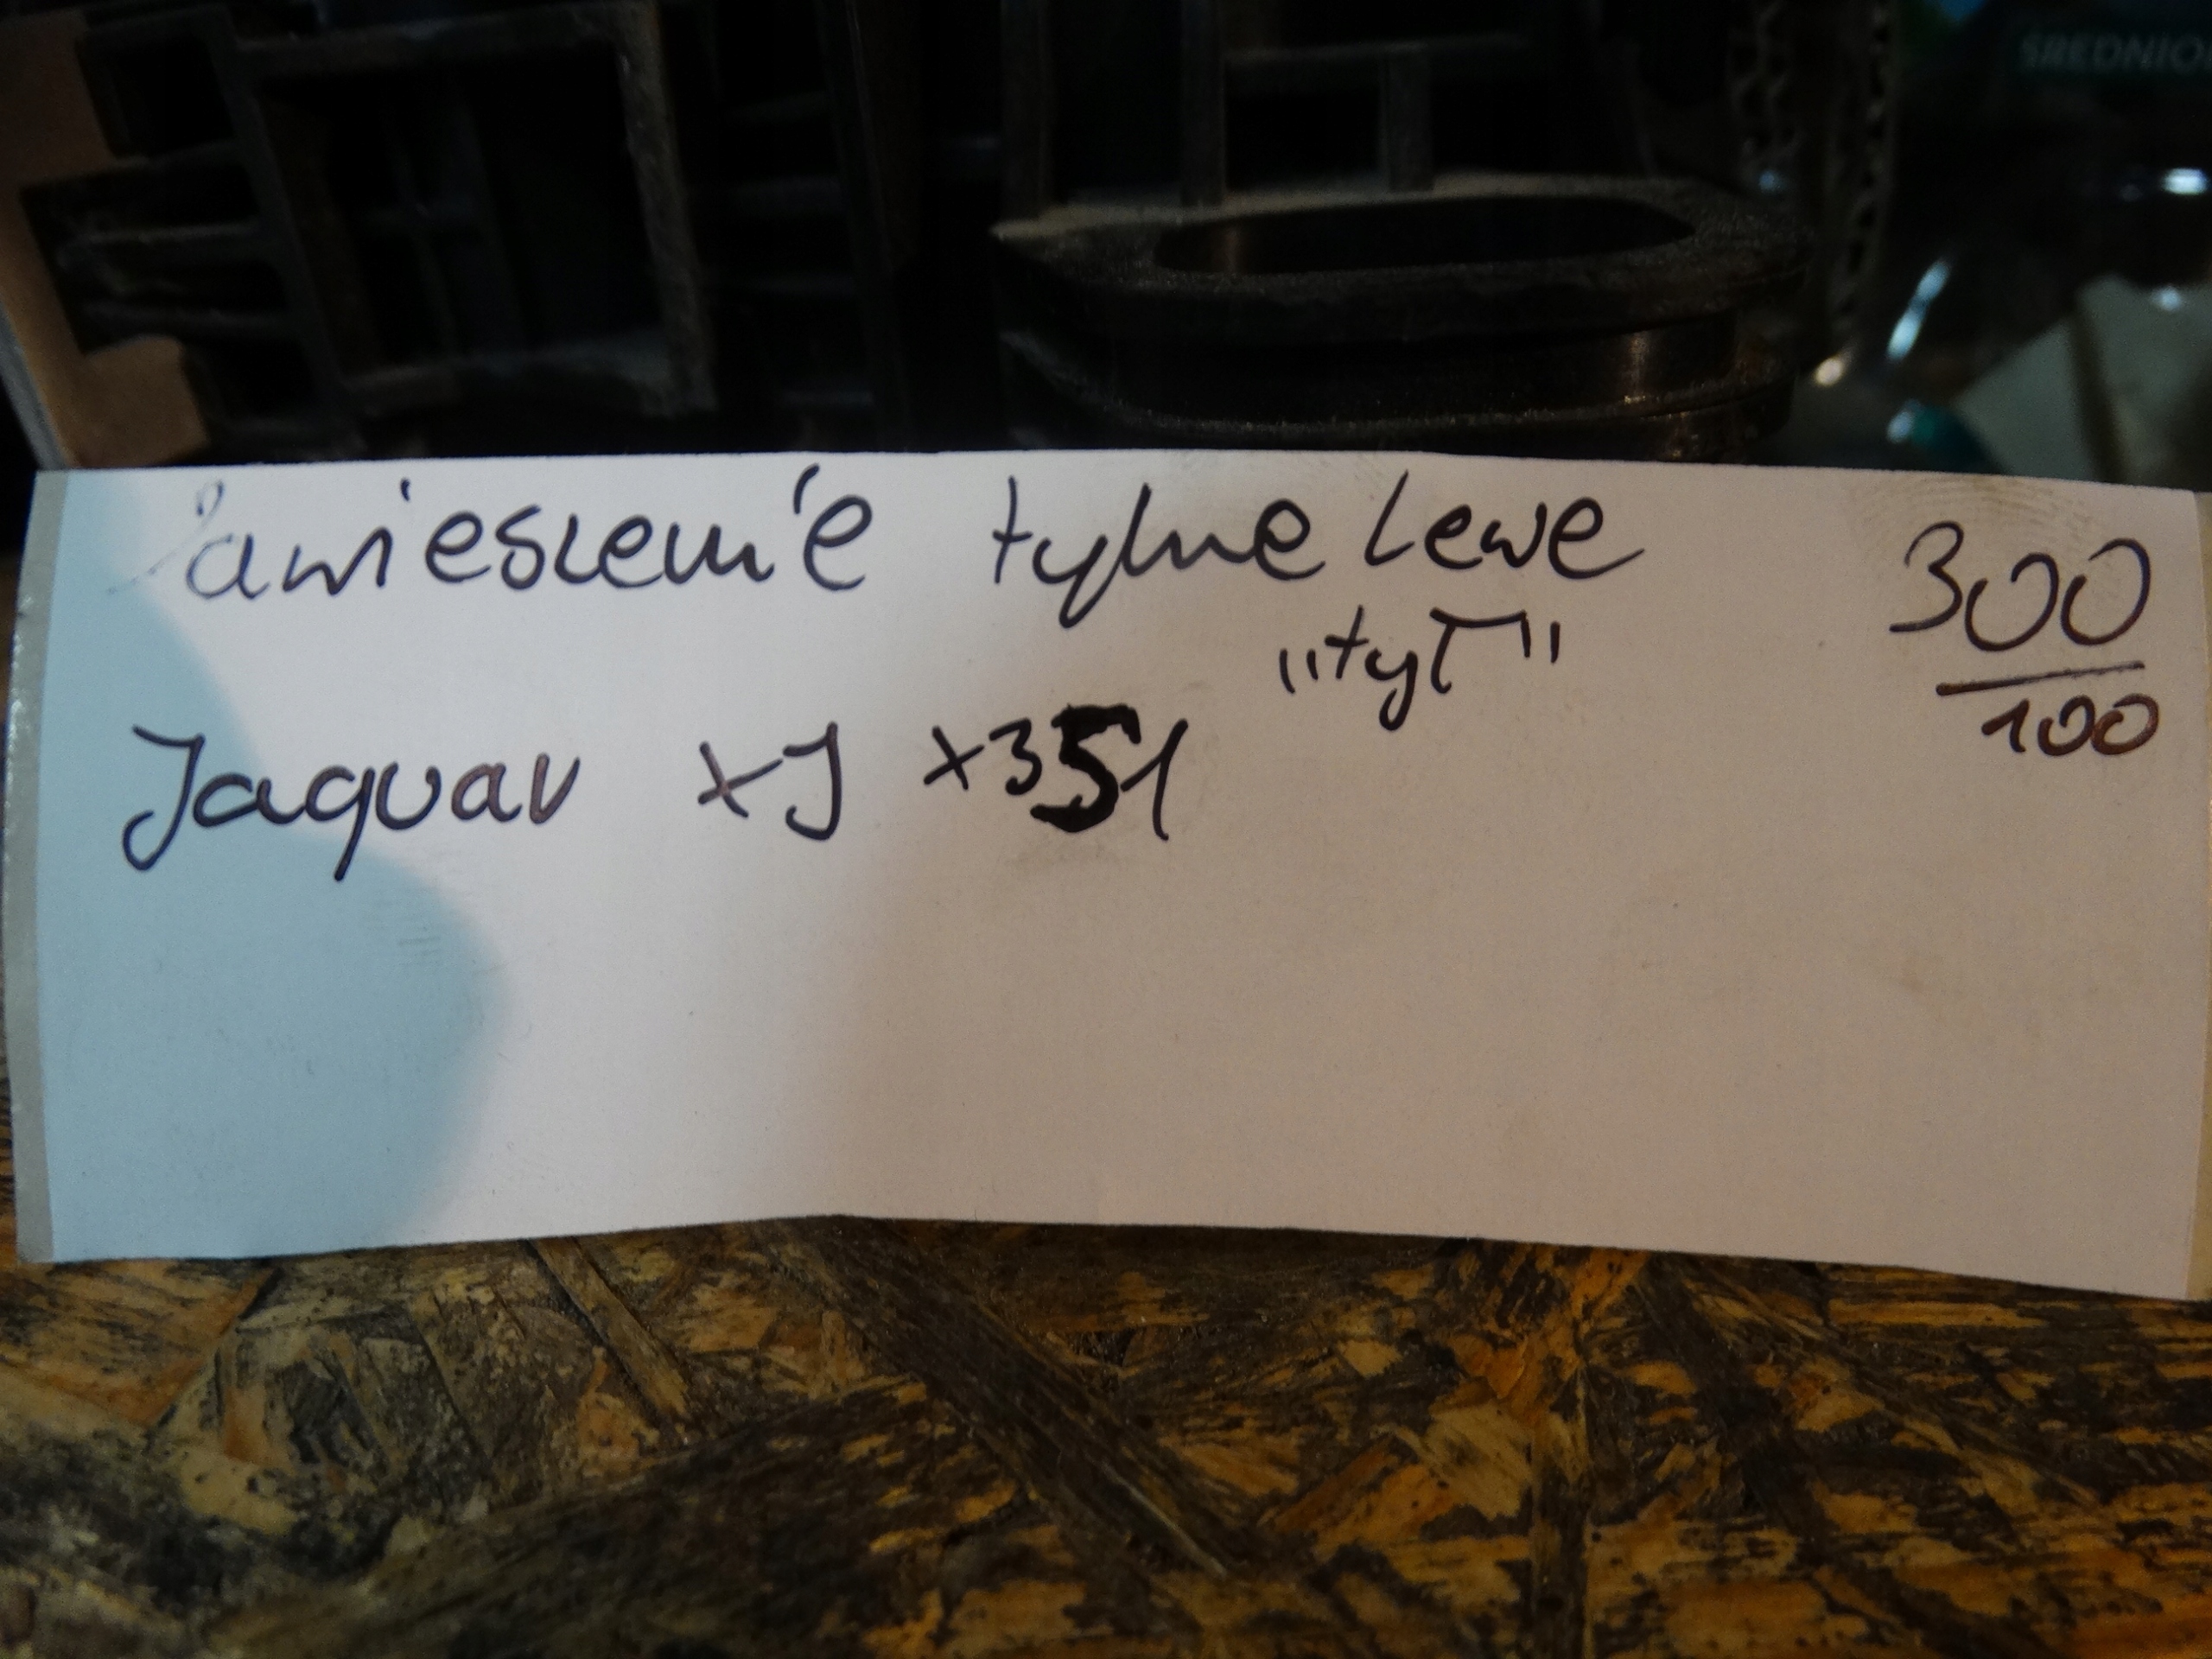 Zawieszenie tylne lewe 300
"tył" 100
Jaguar XJ X351
ŚREDNIO